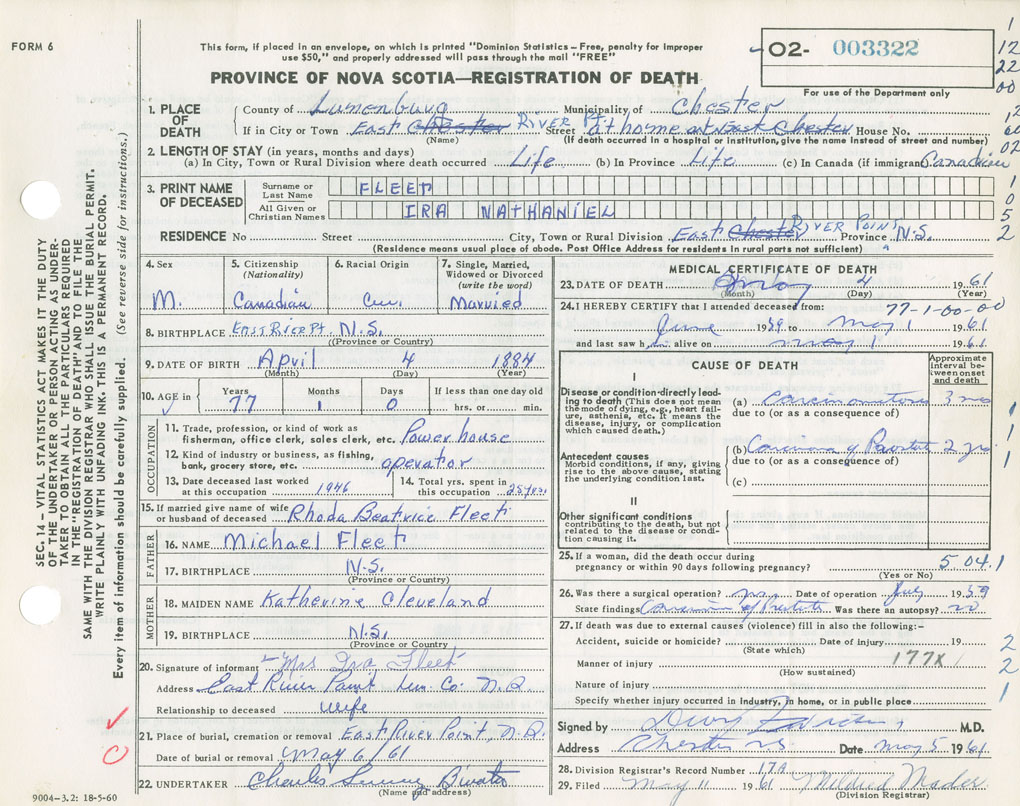 FORM 6
This form, if placed in an envelope, on which is printed "Dominion Statistics – Free, penalty for improper
use $50," and properly addressed will pass through the mail "FREE"
PROVINCE OF NOVA SCOTIA—REGISTRATION OF DEATH
02- 003322
For use of the Department only
1. PLACE OF DEATH
County of Lunenburg Municipality of Chester
If in City or Town East Chester RIVER PT. Street at home at East Chester House No.
(Name) (If death occurred in a hospital or institution, give the name instead of street and number)
2. LENGTH OF STAY (in years, months and days)
(a) In City, Town or Rural Division where death occurred Life (b) In Province Life (c) In Canada (if immigrant) Canadian
3. PRINT NAME OF DECEASED
Surname or Last Name FLEET
All Given or Christian Names IRA NATHANIEL
RESIDENCE No Street City, Town or Rural Division East Chester RIVER POINT Province N.S.
(Residence means usual place of abode. Post Office Address for residents in rural parts not sufficient)
4. Sex M.
5. Citizenship (Nationality) Canadian
6. Racial Origin
7. Single, Married, Widowed or Divorced (write the word) Married
8. BIRTHPLACE EAST RIVER PT. N.S.
(Province or Country)
9. DATE OF BIRTH April 4 1884
(Month) (Day) (Year)
10. AGE in Years 77 Months 1 Days 0 If less than one day old hrs. or min.
OCCUPATION
11. Trade, profession, or kind of work as
fisherman, office clerk, sales clerk, etc. Power house
12. Kind of industry or business, as fishing,
bank, grocery store, etc. operator
13. Date deceased last worked at this occupation 1946
14. Total yrs. spent in this occupation 25 yrs.
15. If married give name of wife or husband of deceased Rhoda Beatrice Fleet
FATHER
16. NAME Michael Fleet
17. BIRTHPLACE N.S.
(Province or Country)
MOTHER
18. MAIDEN NAME Katherine Cleveland
19. BIRTHPLACE N.S.
(Province or Country)
20. Signature of informant Mrs Ira Fleet
Address East River Point Lun. Co. N.S.
Relationship to deceased wife
21. Place of burial, cremation or removal East River Point, N.S.
Date of burial or removal May 6/61
22. UNDERTAKER Charles
(Name and address)
9004-3.2: 18-5-60
MEDICAL CERTIFICATE OF DEATH
23. DATE OF DEATH May 4 1961
(Month) (Day) (Year)
24. I HEREBY CERTIFY that I attended deceased from: 77-1-00-00
June 1959 to May 1 1961
and last saw him alive on May 1 1961
CAUSE OF DEATH
Approximate interval between onset and death
I
Disease or condition directly leading to death (This does not mean the mode of dying, e.g., heart failure, asthenia, etc. It means the disease, injury, or complication which caused death.)
(a) Carcinomatosis 3 mos
due to (or as a consequence of)
Antecedent causes
Morbid conditions, if any, giving rise to the above cause, stating the underlying condition last.
(b) Carcinoma of Prostate 2 yrs
due to (or as a consequence of)
(c)
II
Other significant conditions contributing to the death, but not related to the disease or condition causing it.
25. If a woman, did the death occur during
pregnancy or within 90 days following pregnancy? 5 04.1
(Yes or No)
26. Was there a surgical operation? yes Date of operation July 1959
State findings Carcinoma of Prostate Was there an autopsy? no
27. If death was due to external causes (violence) fill in also the following:-
Accident, suicide or homicide? Date of injury 19
(State which)
Manner of injury 177X
(How sustained)
Nature of injury
Specify whether injury occurred in industry, in home, or in public place
Signed by M.D.
Address Chester N.S. Date May 5 1961
28. Division Registrar's Record Number 17A
29. Filed May 11 1961 Mildred Mader
(Division Registrar)
SEC. 14 – VITAL STATISTICS ACT MAKES IT THE DUTY
OF THE UNDERTAKER OR PERSON ACTING AS UNDER-
TAKER TO OBTAIN ALL THE PARTICULARS REQUIRED
IN THE "REGISTRATION OF DEATH" AND TO FILE THE
SAME WITH THE DIVISION REGISTRAR WHO SHALL ISSUE THE BURIAL PERMIT.
WRITE PLAINLY WITH UNFADING INK. THIS IS A PERMANENT RECORD.
Every item of information should be carefully supplied. (See reverse side for instructions.)